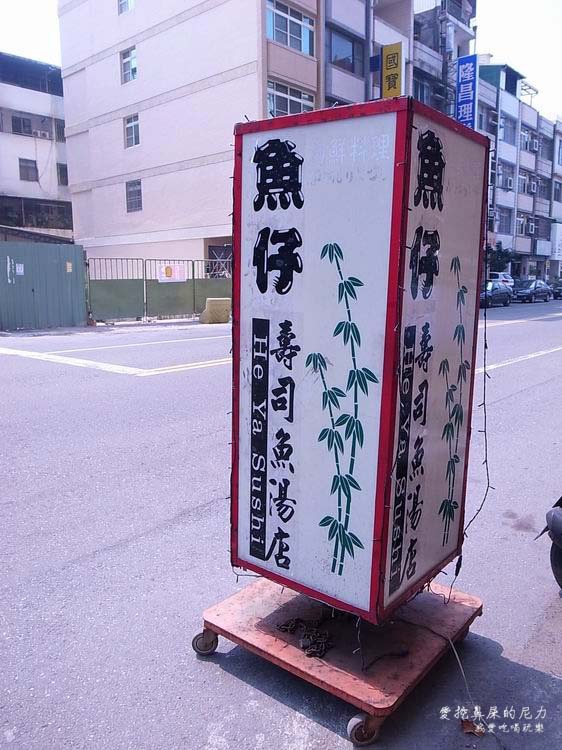 魚仔
壽司魚湯店
He Ya Sushi
魚仔
壽司魚湯店
He Ya Sushi
國寶
隆昌理
愛挖鼻屎的尼力
我愛吃喝玩樂